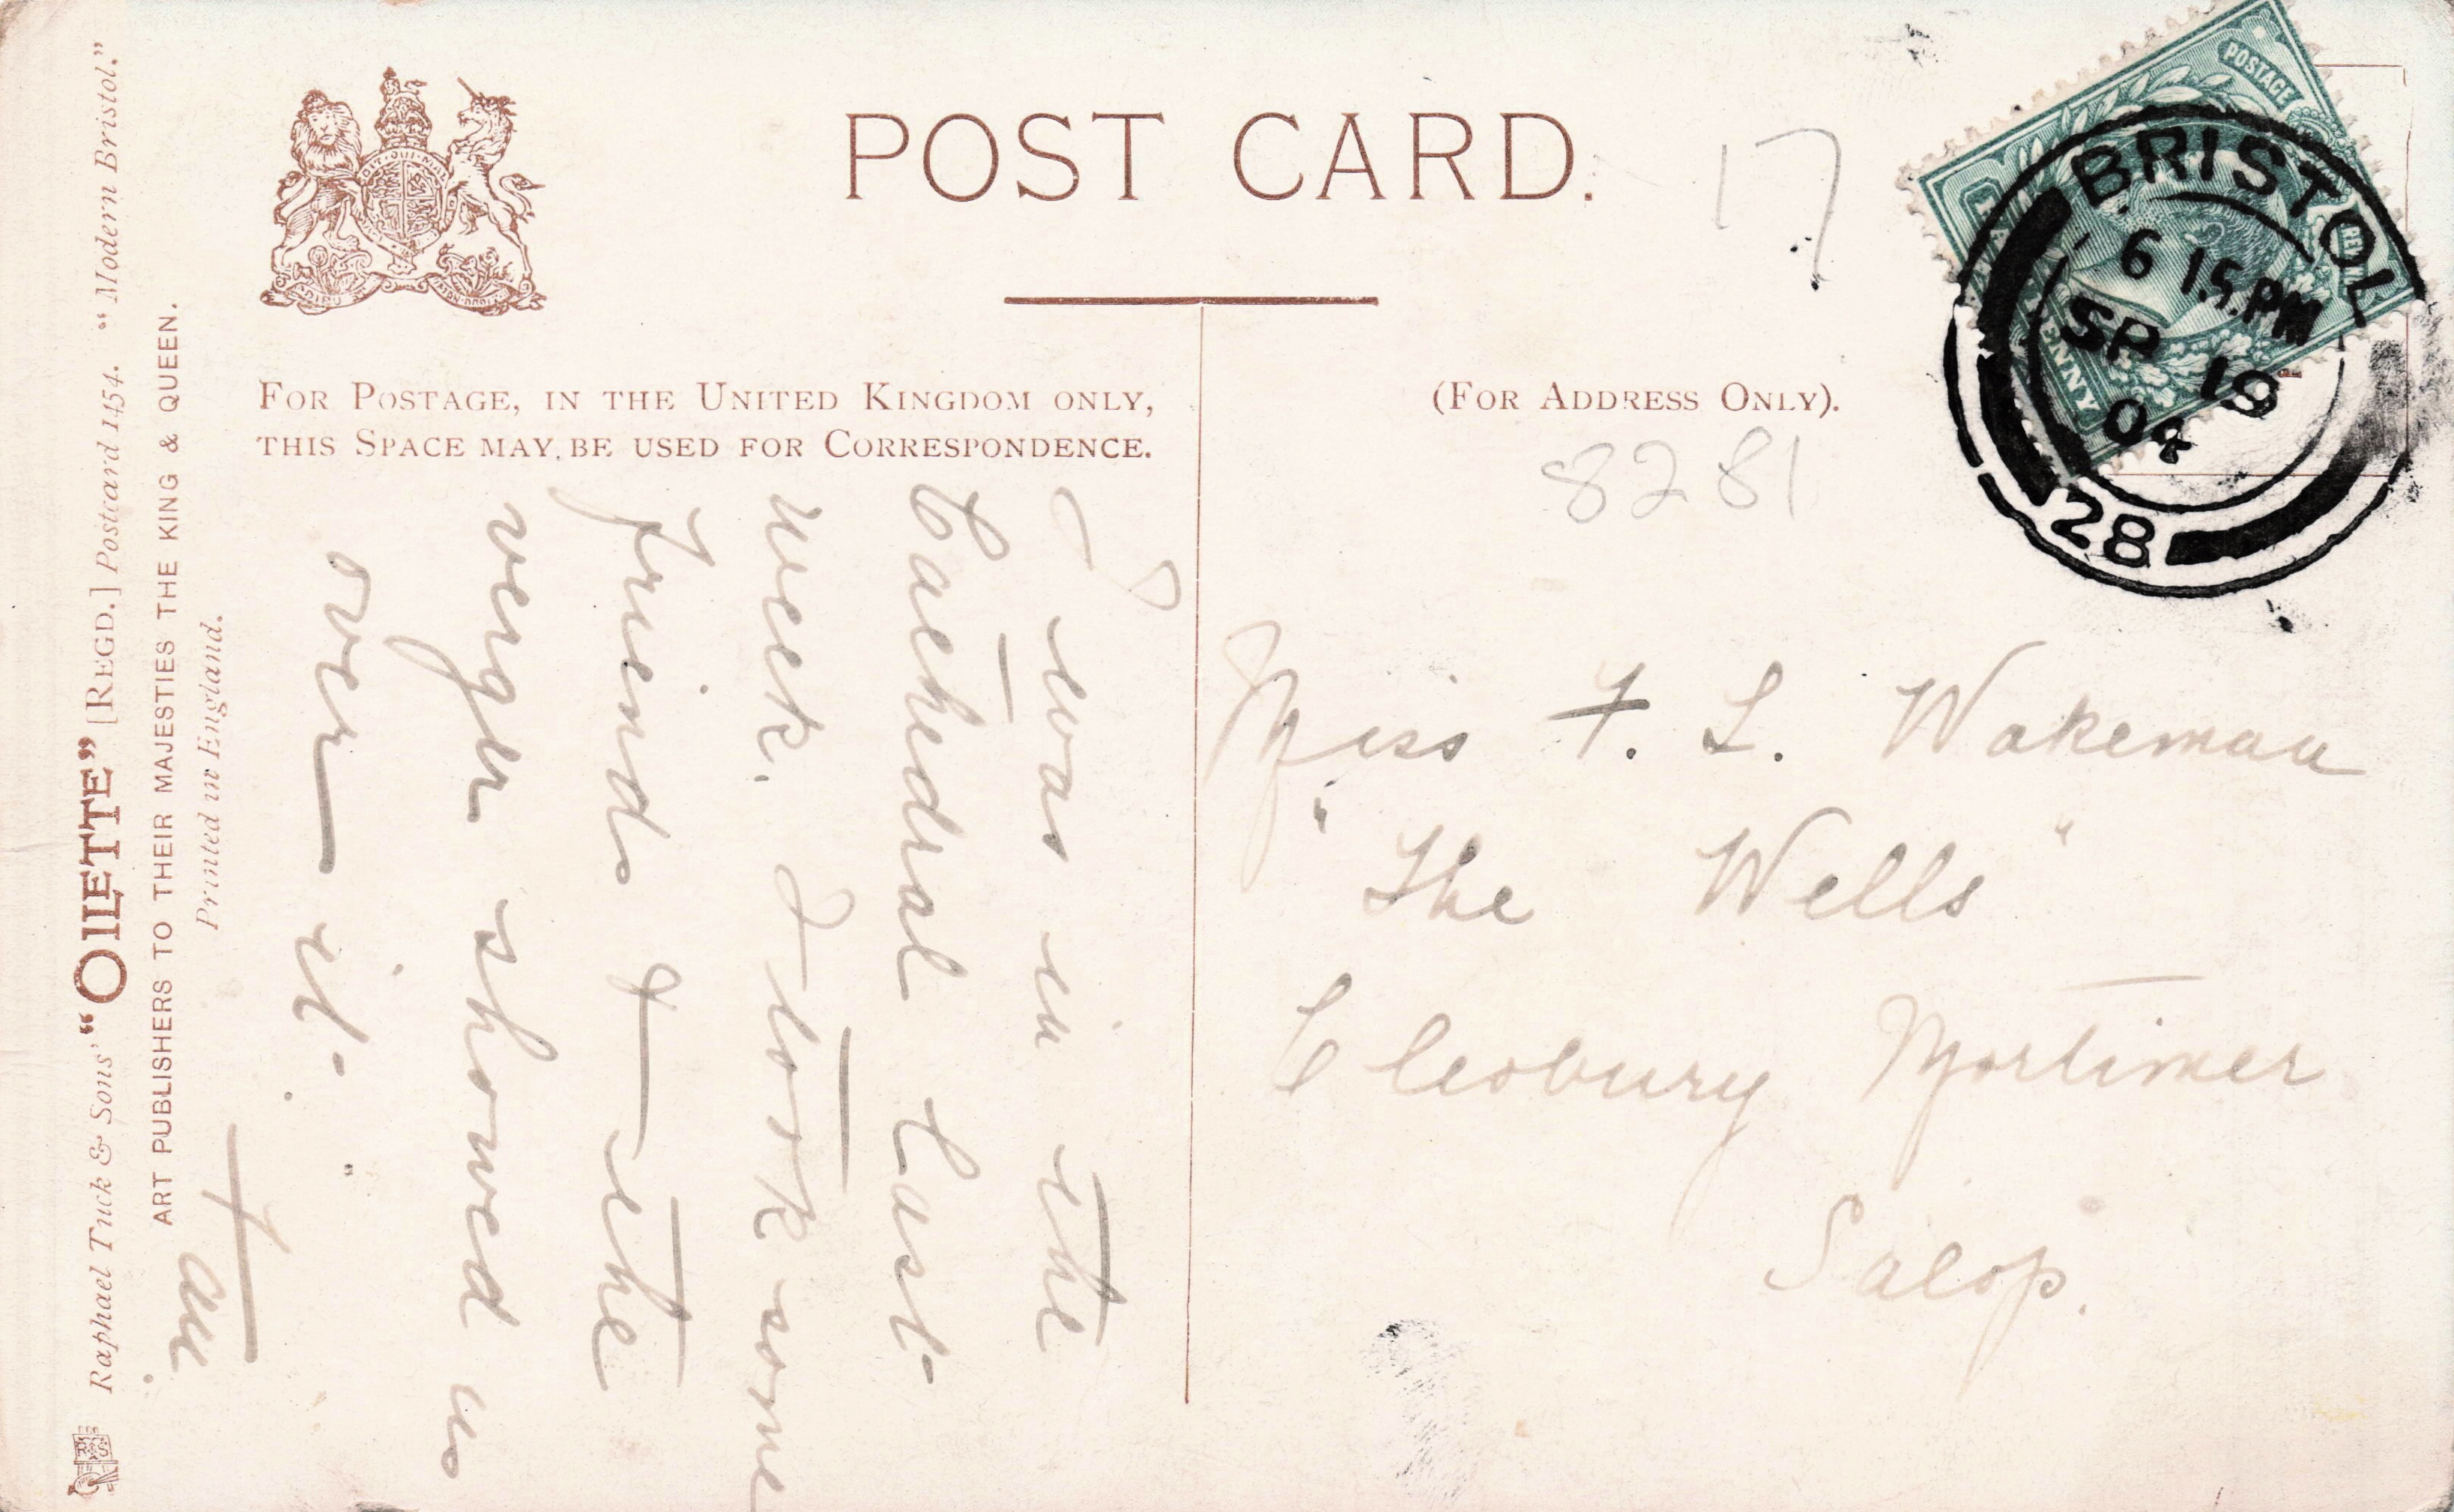 POST CARD.
17
FOR POSTAGE, IN THE UNITED KINGDOM ONLY,
THIS SPACE MAY BE USED FOR CORRESPONDENCE.
(FOR ADDRESS ONLY).
8281
I was in the
Cathedral last
week. I took some
friends & the
verger showed us
over it.
Miss F. L. Wakeman
"The Wells"
Cleobury Mortimer
Salop.
POSTAGE
BRISTOL
6 15.PM
SP 19
04
28
PENNY
Raphael Tuck & Sons' "OILETTE" [REGD.] Postcard 1454. "Modern Bristol."
ART PUBLISHERS TO THEIR MAJESTIES THE KING & QUEEN.
Printed in England.